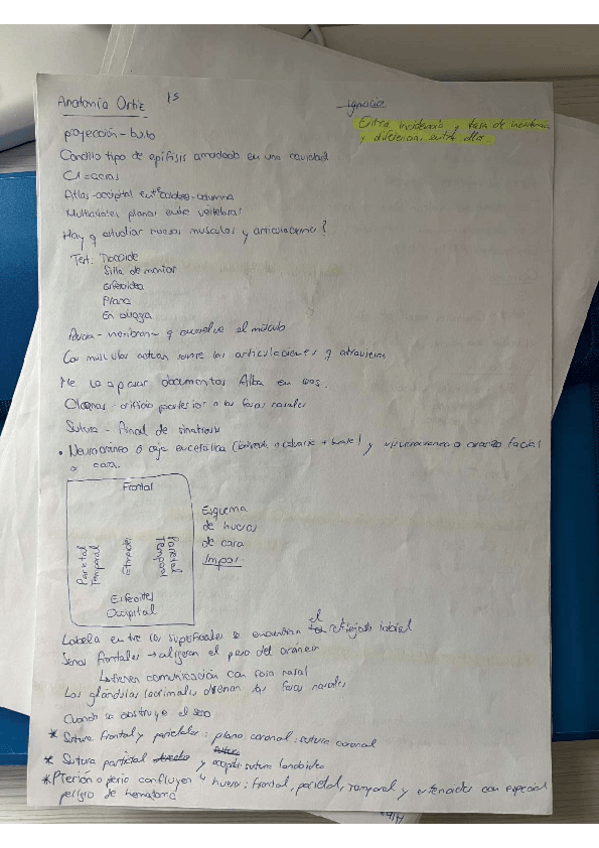 Anatomía Ortiz
15
Ignacio
Entre incidencia y tasa de
y diferencias entre ellas.
proyección - bulto
Cóndilo tipo de epífisis amoldado en una cavidad
Atlas-occipital entre cabeza-columna
Multiaxiales planas entre vertebras
Hay q estudiar huesos musculos y articulaciones?
Test: Trocoide
Silla de montar
Esferoidea
Plana
En bisagra
membrana q envuelve el músculo
Los músculos actuan sobre las articulaciones q atraviesan
Me va a pasar documentos Alba en
Coanas - orificio posterior a las fosas nasales
Sutura - final de sinartrosis
• Neurocráneo o caja encefálica ( + base) y viscerocráneo o craneo facial
o cara.
Frontal
Parietal
Temporal
Etmoides
Parietal
Temporal
Esfenoides
Occipital
Esquema
de huesos
de cara
Impor.
Labela entre los superficiales se encuentran el
Senos frontales → aligeran el peso del cráneo
↳ tienen comunicación con fosa nasal
Las glándulas lacrimales drenan las fosas nasales
Cuando se obstruye el seno
* Sutura frontal y parietales: plano coronal: sutura coronal
* Sutura parietal y sutura lamboidea
* Pterión o pterio confluyen 4 huesos: frontal, parietal, temporal y esfenoides con especial
peligro de hematoma